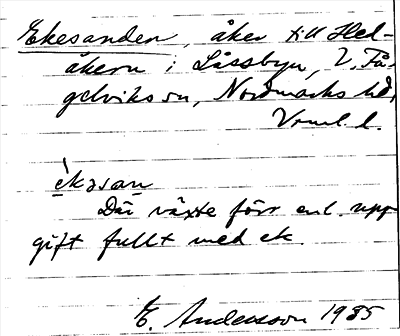 Ekesanden, åker till Hed-
åkern i Låssbyn, V. Få-
gelviks sn, Nordmarks hd,
Vrml. l.
èkəsan
Där växte förr enl. upp-
gift fullt med ek.
E. Andersson 1985